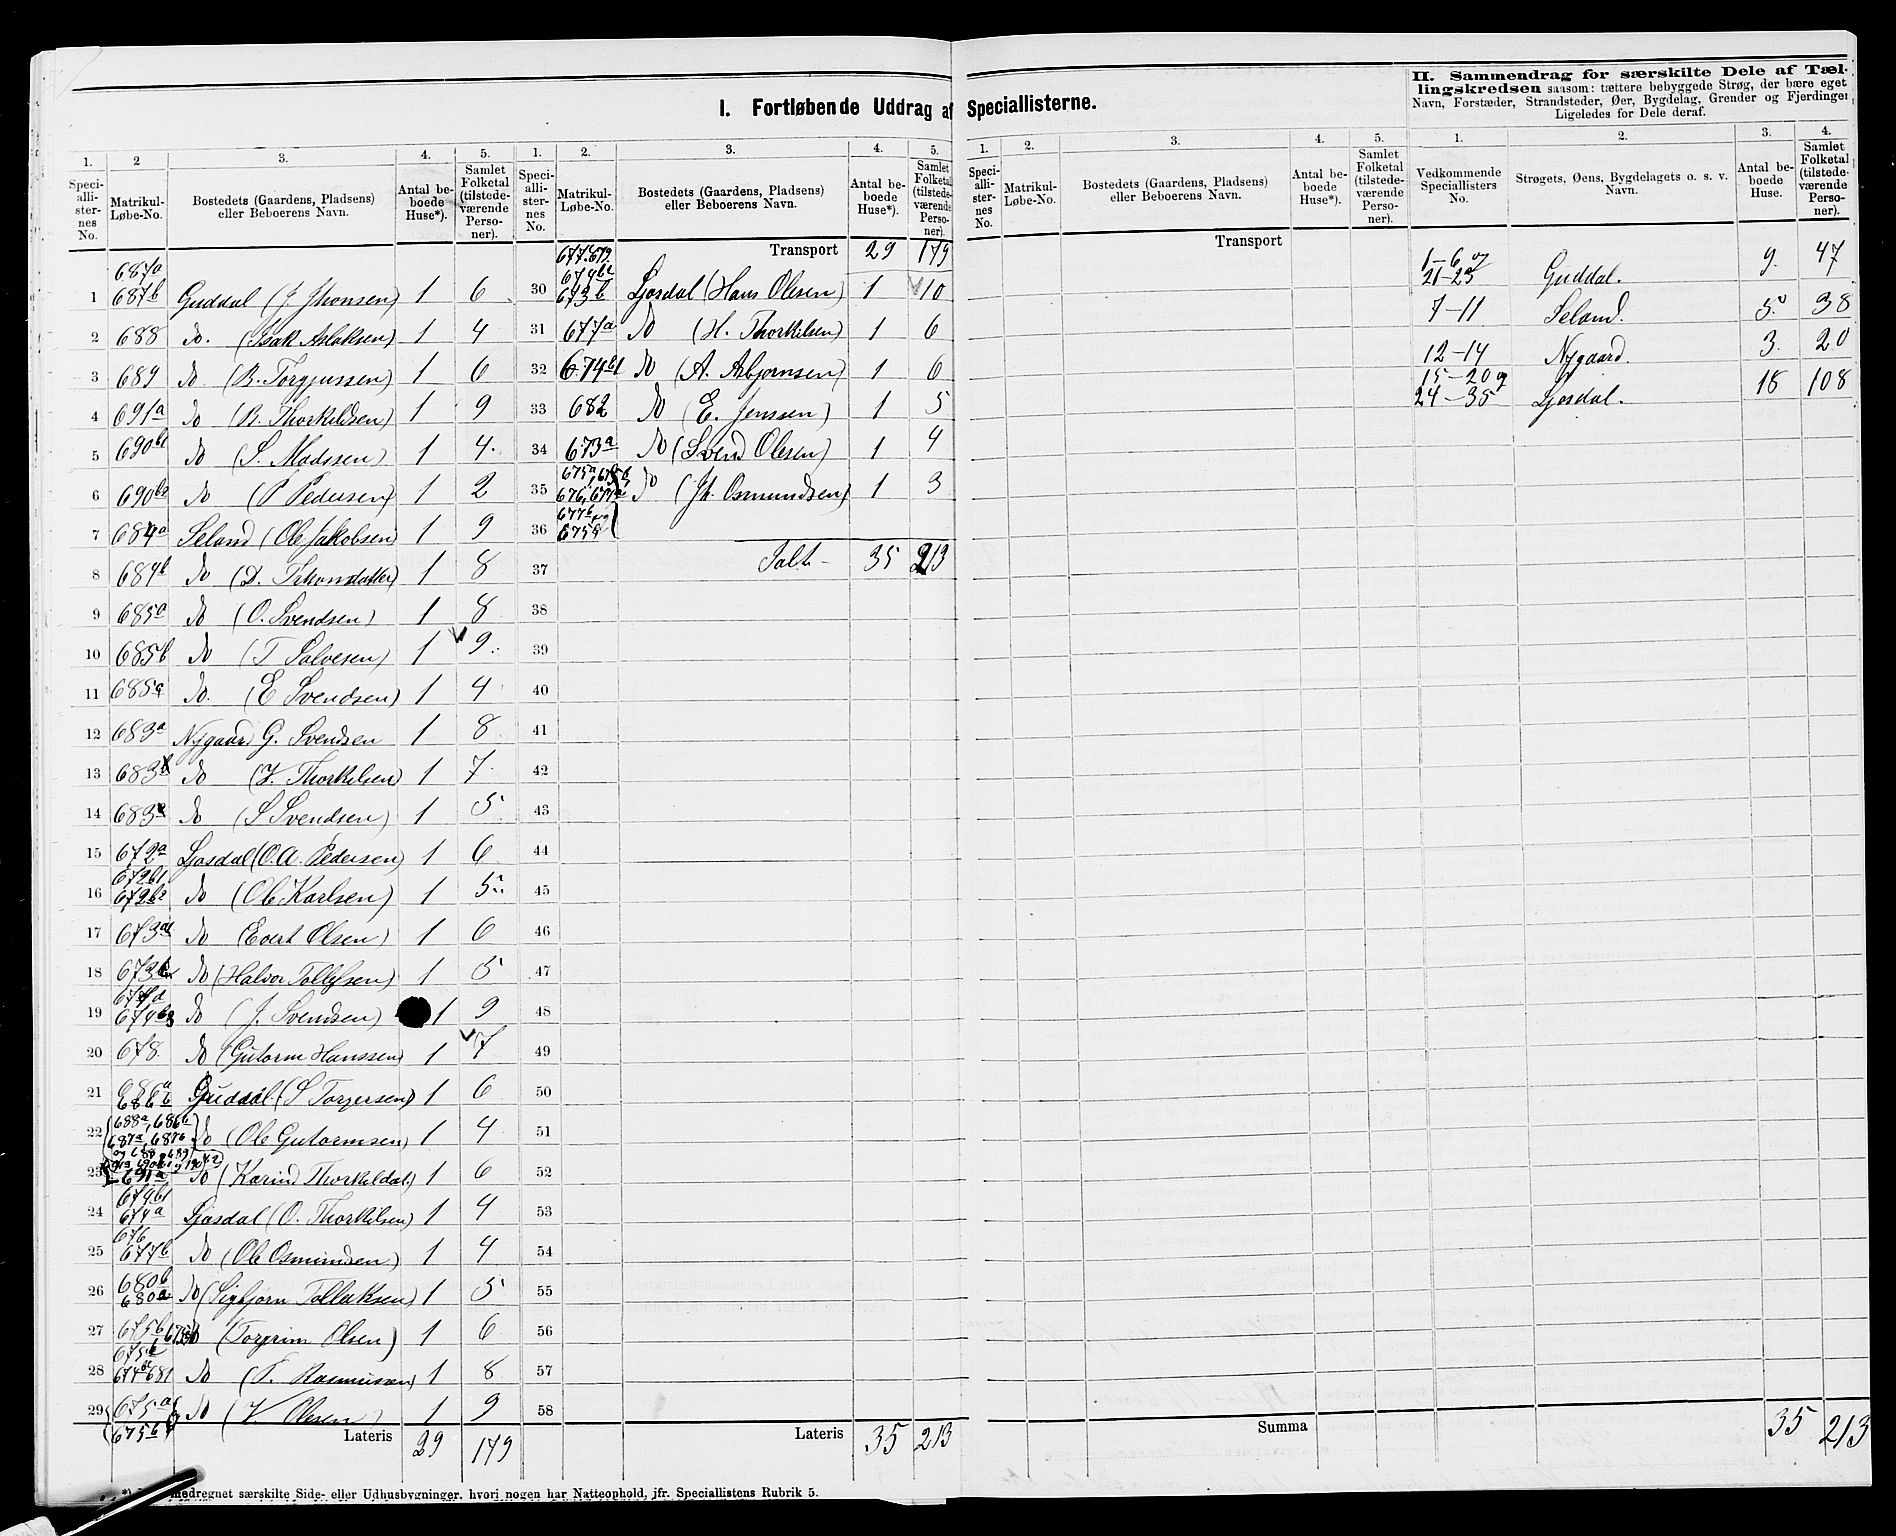 I. Fortløbende Uddrag af Speciallisterne.
II. Sammendrag for særskilte Dele af Tæl-
lingskredsen saasom: tættere bebyggede Strøg, der bære eget
Navn, Forstæder, Strandsteder, Øer, Bygdelag, Grender og Fjerdinger
Ligeledes for Dele deraf.
1. 2 3. 4. 5.
Speci-alli-ster-nes No. Matrikul-Løbe-No. Bostedets (Gaardens, Pladsens) eller Beboerens Navn. Antal be-boede Huse*). Samlet Folketal (tilstede-værende Perso-ner).
1 687a 687b Guddal (J Jhonsen) 1 6
2 688 do. (Isak Aslaksen) 1 4
3 689 do (B. Torgjussen) 1 6
4 691a do (B. Thorkildsen) 1 9
5 690b1 do (S. Madssen) 1 4.
6 690b2 do (P Pedersen) 1 2
7 684a Seland (Ole Jakobsen) 1 9
8 684b do (D. ) 1 8
9 685a do (O. Svendsen) 1 8
10 685b do (T Salvesen) 1 9
11 685c do. (E Svendsen) 1 4
12 683a Nygaard G. Svendsen 1 8
13 683b do (V. Thorkilsen) 1 7
14 683c do (S Svendsen) 1 5
15 672a Ljosdal (O.A. Pedersen) 1 6
16 672b1 672b2 do (Ole Karlsen) 1 5
17 673a do (Evert Olsen) 1 6
18 673b do (Halvor Tollefsen) 1 5
19 674a 674b3 do (J. Svendsen) 1 9
20 678. do (Gutorm Hanssen) 1 7
21 686a b Guddal (S Torjersen) 1 6
22 688a, 686b 687a, 687b do (Ole Gutormsen) 1 4
23 og 688 689 691a do (Karin Thorkildsd.) 1 6
24 674b1 674a Ljosdal (O. Thorkilsen) 1 4
25 676 677b do (Ole Osmundsen) 1 4
26 680b 680a do (Sigbjorn Tollaksen) 1 5
27 675b do (Torgrim Olsen) 1 6
28 675b 674 681 do (T. Rasmussen) 1 8
29 675a 675b do (V. Olesen) 1 9
Lateris 29 179
1. 2. 3. 4. 5.
Speci-alli-ster-nes No. Matrikul-Løbe-No. Bostedets (Gaardens, Pladsens) eller Beboerens Navn. Antal be-boede Huse*). Samlet Folketal (tilstede-værende Perso-ner).
Transport 29 179
30 677. 679. 674b2 673b Ljosdal (Hans Olesen) 1 10
31 677a do (H. Thorkilsen) 1 6
32 674b1 do (A. Asbjornsen) 1 6
33 682 do (E. Jenssen) 1 5
34 673a do (Svend Olesen) 1 4
35 675a, 676, 677a do (Jh. Osmundsen) 1 3
36 677b og 675a
37 Ialt - 35 213
38
39
40
41
42
43
44
45
46
47
48
49
50
51
52
53
54
55
56
57
58
Lateris 35 213
1. 2. 3. 4. 5.
Speci-alli-ster-nes No. Matrikul-Løbe-No. Bostedets (Gaardens, Pladsens) eller Beboerens Navn. Antal be-boede Huse*). Samlet Folketal (tilstede-værende Perso-ner).
Transport
Summa 35 213
1. 2. 3. 4.
Vedkommende Speciallisters No. Strøgets, Øens, Bygdelagets o. s. v. Navn. Antal be-boede Huse. Samlet Folketal (tilstede-værende Perso-ner).
1-6 og 21-23 Guddal. 9. 47
7-11 Seland. 5. 38
12-14 Nygaard. 3. 20
15-20 og 24-35 Ljosdal. 18 108
medregnet særskilte Side- eller Udhusbygninger, hvori nogen har Natteophold, jfr. Speciallistens Rubrik 5.